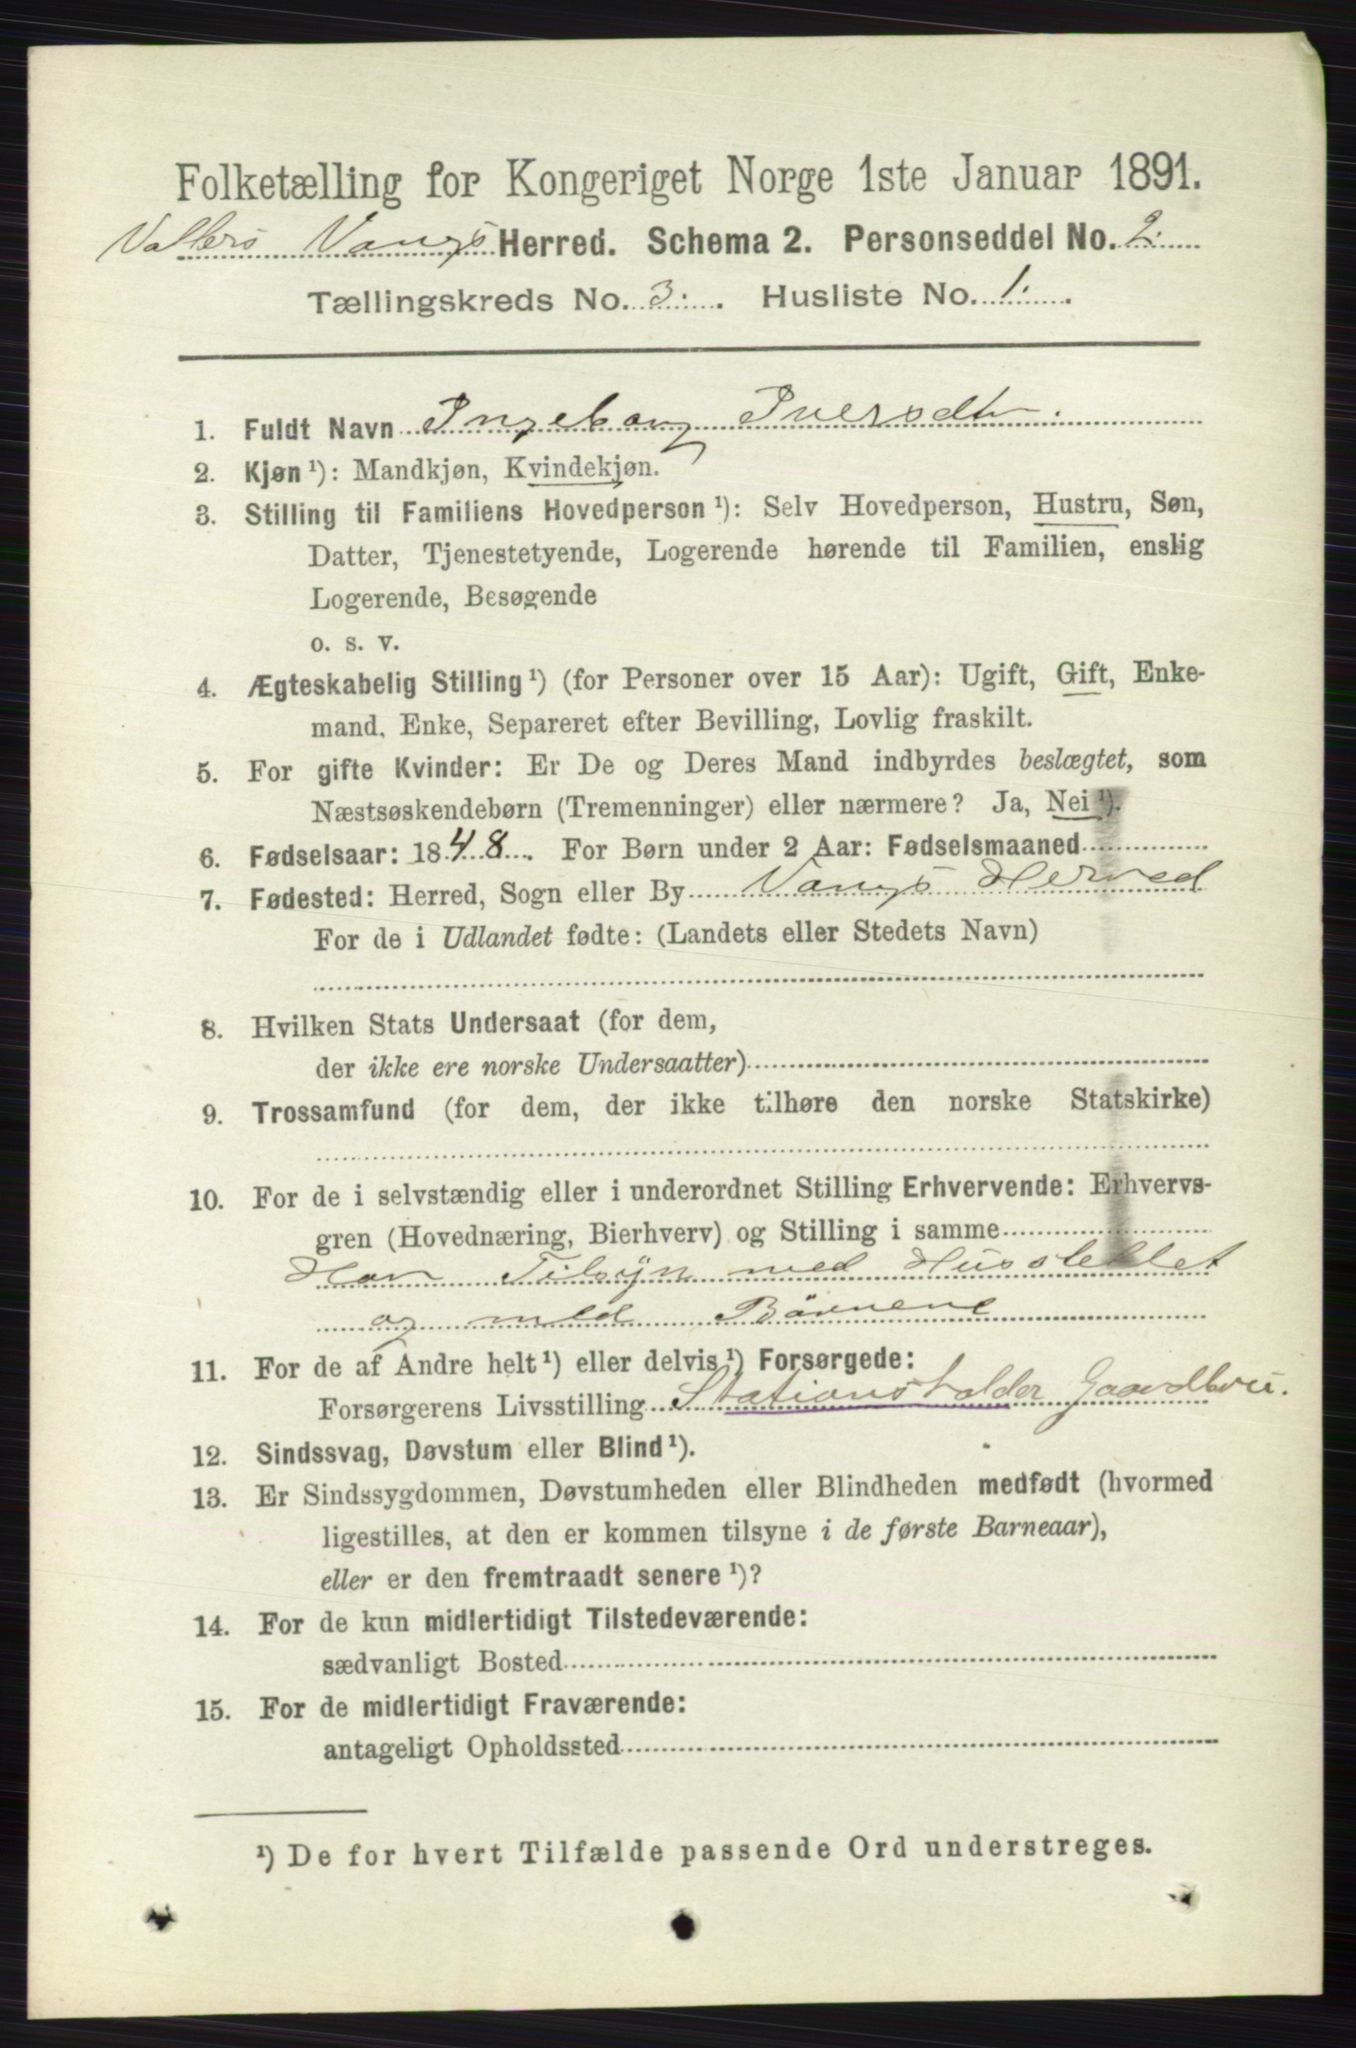 Folketælling for Kongeriget Norge 1ste Januar 1891.
Vallers Vangs Herred. Schema 2. Personseddel No. 2.
Tællingskreds No. 3. Husliste No. 1.
1. Fuldt Navn Ingeborg Iversdtr.
2. Kjøn ¹): Mandkjøn, Kvindekjøn.
3. Stilling til Familiens Hovedperson ¹): Selv Hovedperson, Hustru, Søn,
Datter, Tjenestetyende, Logerende hørende til Familien, enslig
Logerende, Besøgende
o. s. v.
4. Ægteskabelig Stilling ¹) (for Personer over 15 Aar): Ugift, Gift, Enke-
mand, Enke, Separeret efter Bevilling, Lovlig fraskilt.
5. For gifte Kvinder: Er De og Deres Mand indbyrdes beslægtet, som
Næstsøskendebørn (Tremenninger) eller nærmere? Ja, Nei ¹).
6. Fødselsaar: 1848. For Børn under 2 Aar: Fødselsmaaned
7. Fødested: Herred, Sogn eller By Vangs Herred
For de i Udlandet fødte: (Landets eller Stedets Navn)
8. Hvilken Stats Undersaat (for dem,
der ikke ere norske Undersaatter)
9. Trossamfund (for dem, der ikke tilhøre den norske Statskirke)
10. For de i selvstændig eller i underordnet Stilling Erhvervende: Erhvervs-
gren (Hovednæring, Bierhverv) og Stilling i samme
Har Tilsyn med Husstellet
og med Börnene
11. For de af Andre helt ¹) eller delvis ¹) Forsørgede:
Forsørgerens Livsstilling Stationsholder Gaardbru.
12. Sindssvag, Døvstum eller Blind ¹).
13. Er Sindssygdommen, Døvstumheden eller Blindheden medfødt (hvormed
ligestilles, at den er kommen tilsyne i de første Barneaar),
eller er den fremtraadt senere ¹)?
14. For de kun midlertidigt Tilstedeværende:
sædvanligt Bosted
15. For de midlertidigt Fraværende:
antageligt Opholdssted
¹) De for hvert Tilfælde passende Ord understreges.